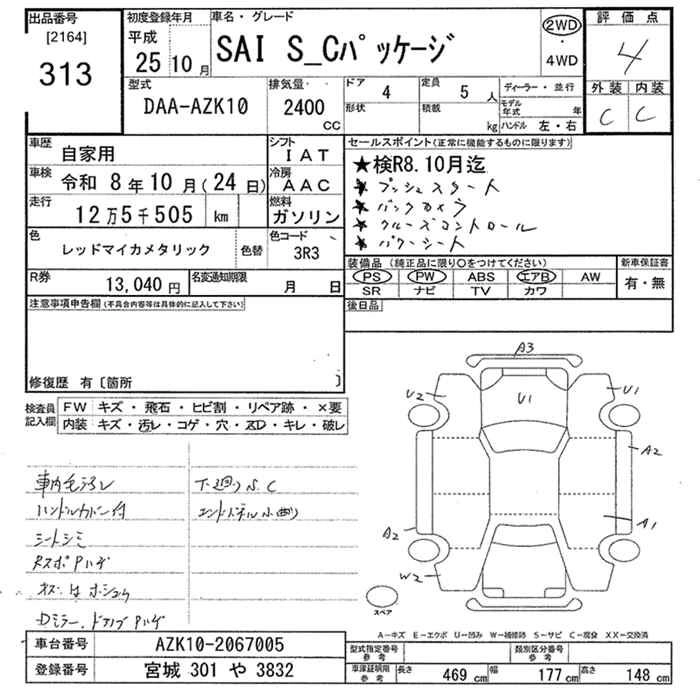 出品番号
[2164]
313
初度登録年月
平成
25 10月
車名・グレード
SAI S_Cパッケージ
2WD
・
4WD
評価点
4
外装 内装
C C
型式
DAA-AZK10
排気量
2400
CC
ドア
4
定員
5 人
形状
積載
kg
ディーラー・並行
モデル年式 年
ハンドル 左・右
車歴
自家用
シフト
IAT
車検
令和 8年 10月(24日)
冷房
AAC
走行
12万5千505 km
燃料
ガソリン
色
レッドマイカメタリック
色替
色コード
3R3
R券
13,040円
名変通知期限
月 日
セールスポイント(正常に機能するものに限ります)
★検R8.10月迄
★プッシュスタート
★バックカメラ
★クルーズコントロール
★パワーシート
装備品(純正品に限り○をつけてください)
PS PW ABS エアB AW
SR ナビ TV カワ
新車保証書
有・無
後日品
注意事項申告欄(不具合内容等は具体的に記入して下さい)
修復歴 有〔箇所 〕
検査員
記入欄
FW キズ・飛石・ヒビ割・リペア跡・×要
内装 キズ・汚レ・コゲ・穴・スD・キレ・破レ
車内毛汚レ
ハンドルカバー付
シートシミ
RスポPハゲ
Dミラー、ドアノブPハゲ
下廻りS.C
エンドパネル小曲り
A3
U2
U1
U1
A2
A1
A2
W2
スペア
A-キズ E-エクボ U-凹み W-補修跡 S-サビ C-腐食 XX-交換済
車台番号
AZK10-2067005
登録番号
宮城 301 や 3832
型式指定番号
参考
類別区分番号
参考
車庫証明用
参考
長さ 469 cm 幅 177 cm 高さ 148 cm